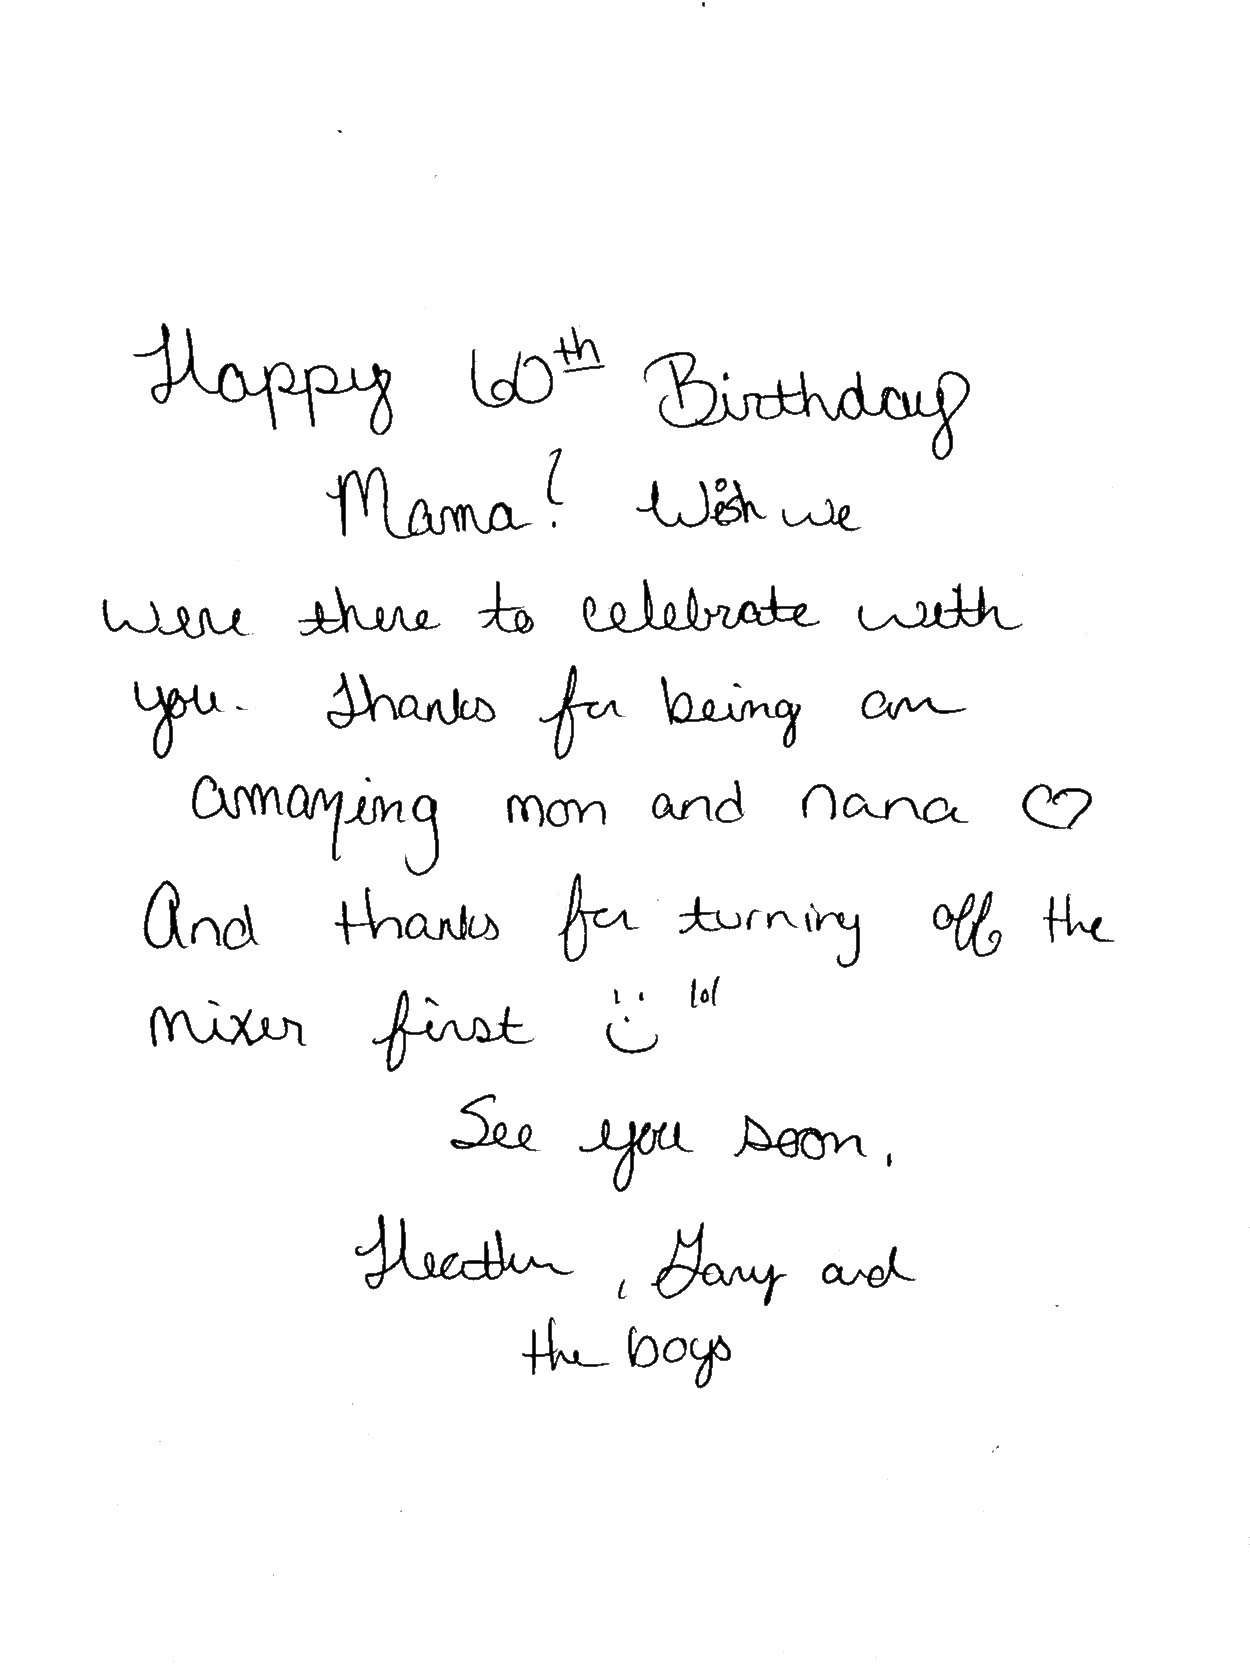 Happy 60th Birthday
Mama! Wish we
were there to celebrate with
you. Thanks for being an
amazing mom and nana ♡
And thanks for turning off the
mixer first :) lol
See you soon,
Heather, Gary and
the boys